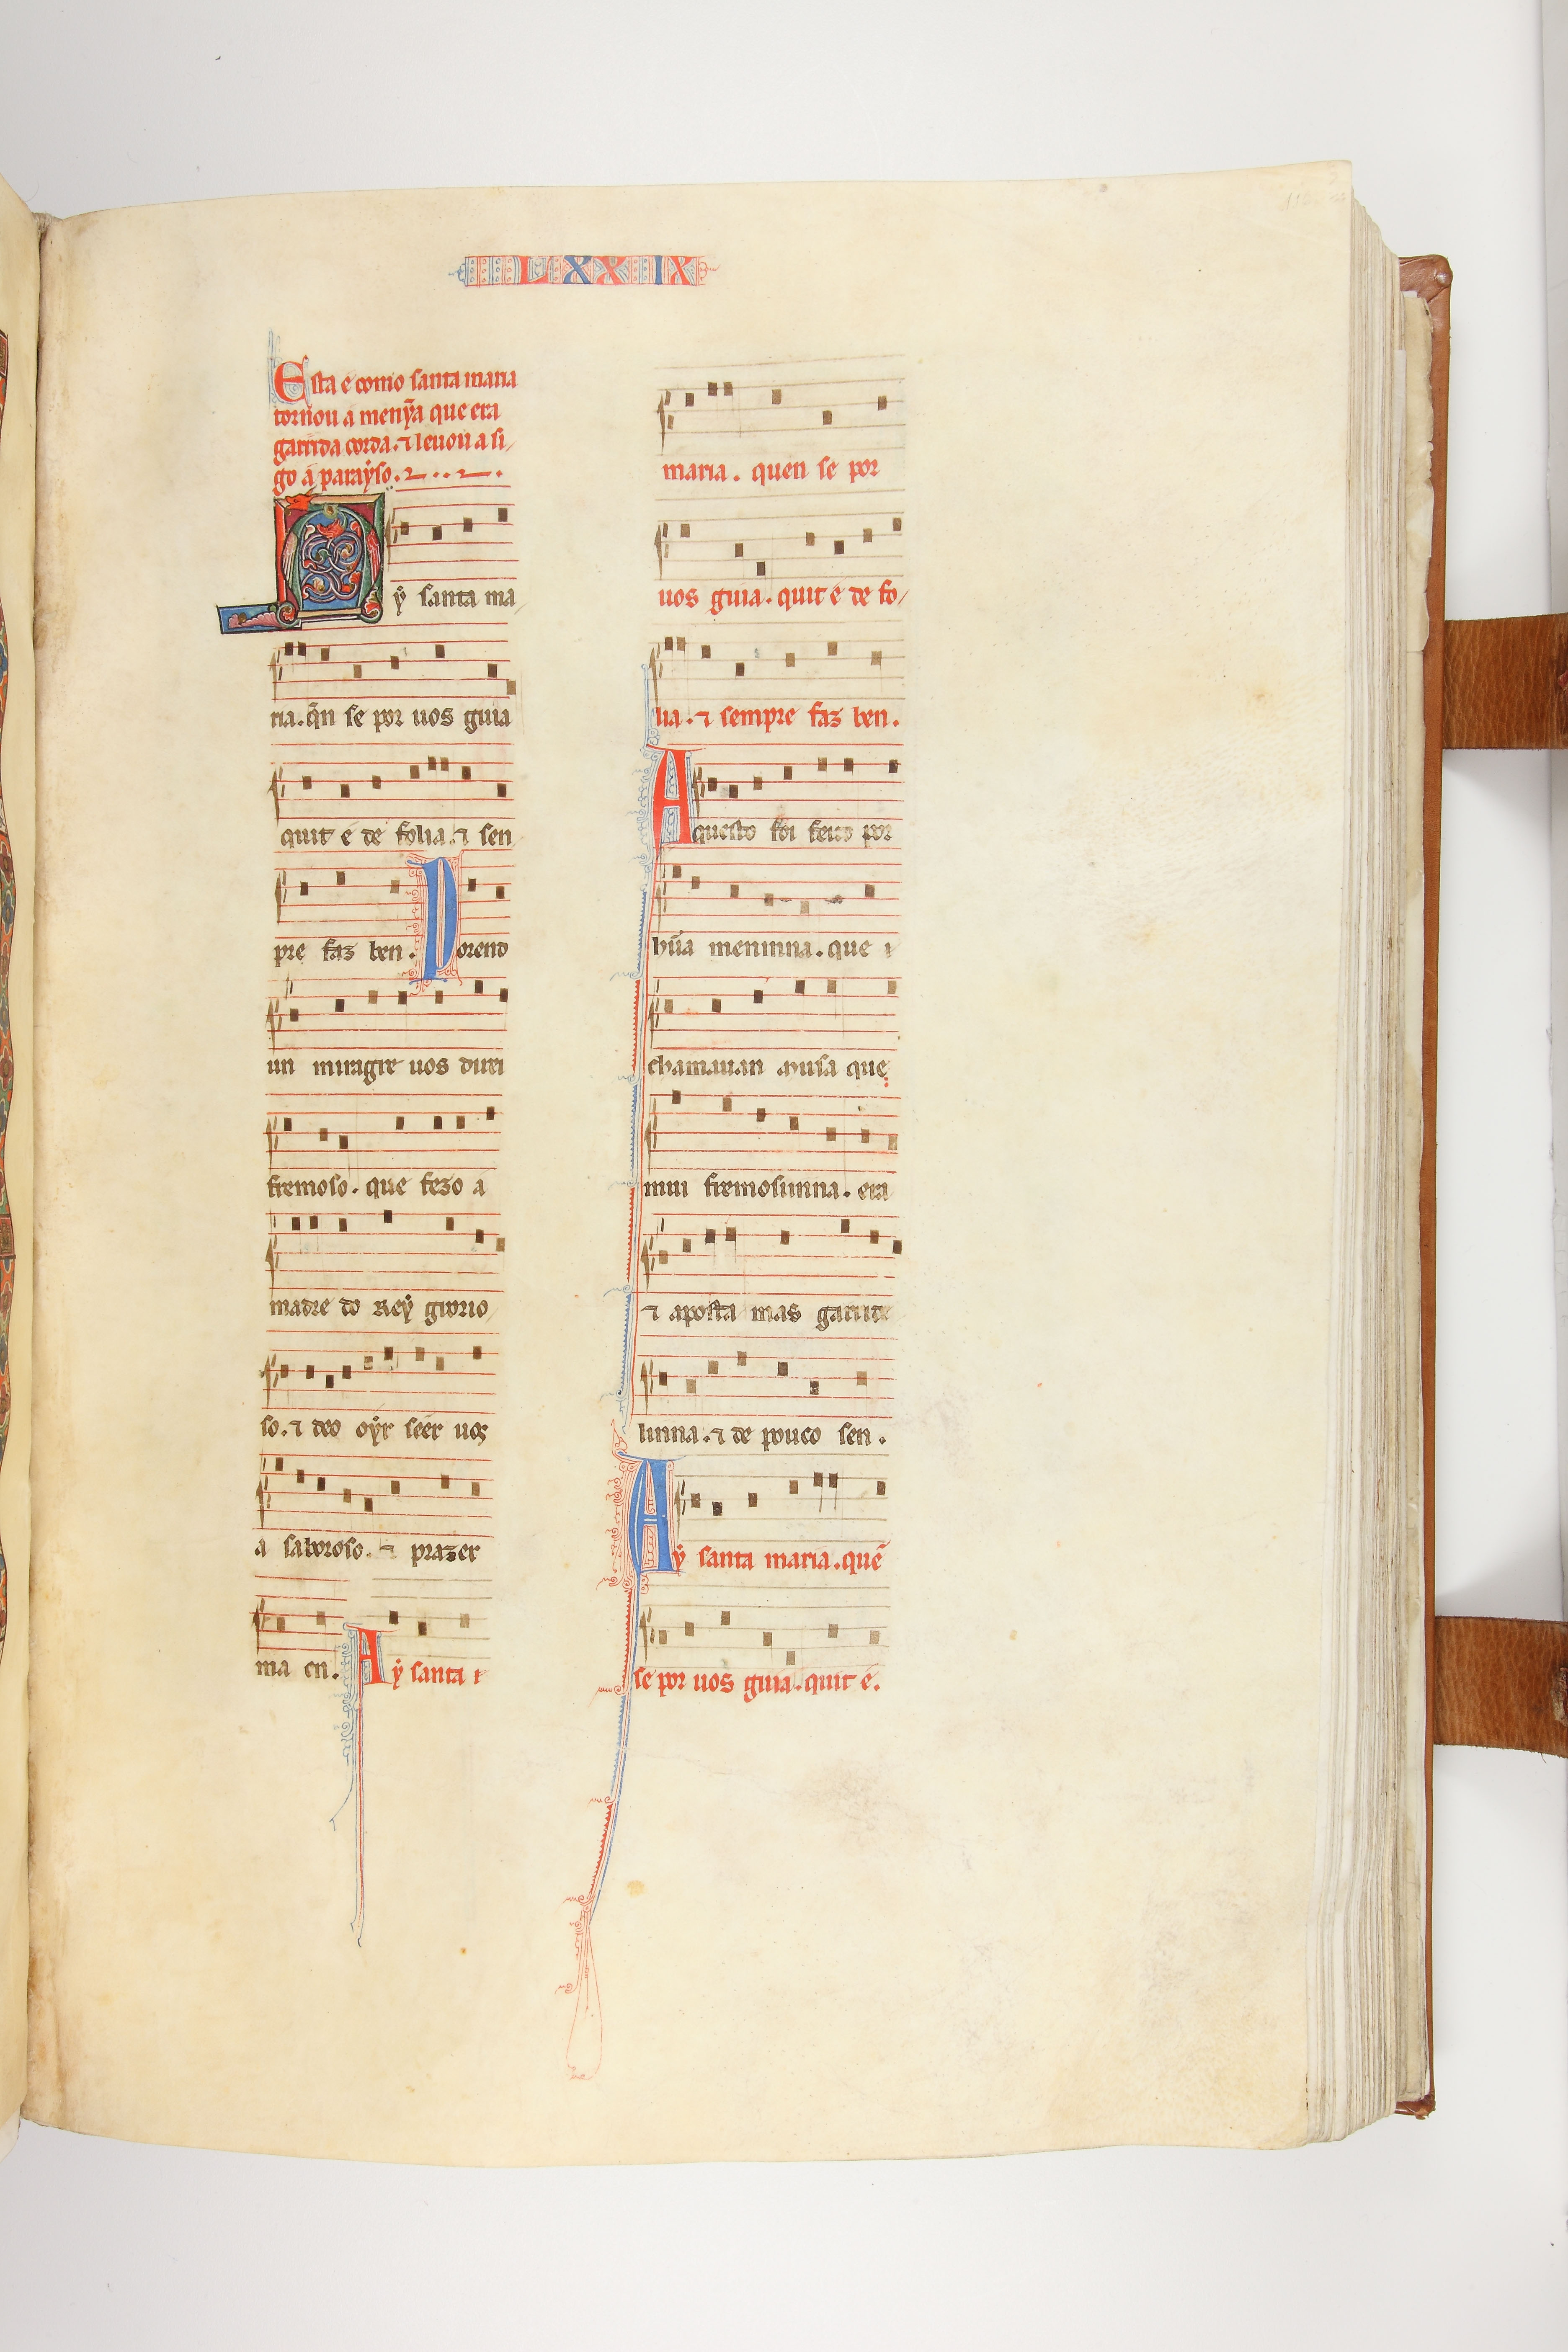 LXXIX
Esta e como santa maria
tornou a menỹa que era
garrida corda. ⁊ leuou a si
go a parayso.
Aẏ santa ma
ria. q̃n se por uos guia
quit e de folia. ⁊ sen
pre faz ben. Porend
un miragre uos direi
fremoso. que fezo a
madre do Rey glorio
so. ⁊ deo oyr seer uos
a saboroso. ⁊ prazer
ma en. Aẏ santa
maria. quen se por
uos guia. quit e de fo
lia. ⁊ sempre faz ben.
Aquesto foi feito por
hũa meninna. que
chamauan musa que
mui fremosinna. era
⁊ aposta mas garride
linna. ⁊ de pouco sen.
Aẏ santa maria. quẽ
se por uos guia. quit e.